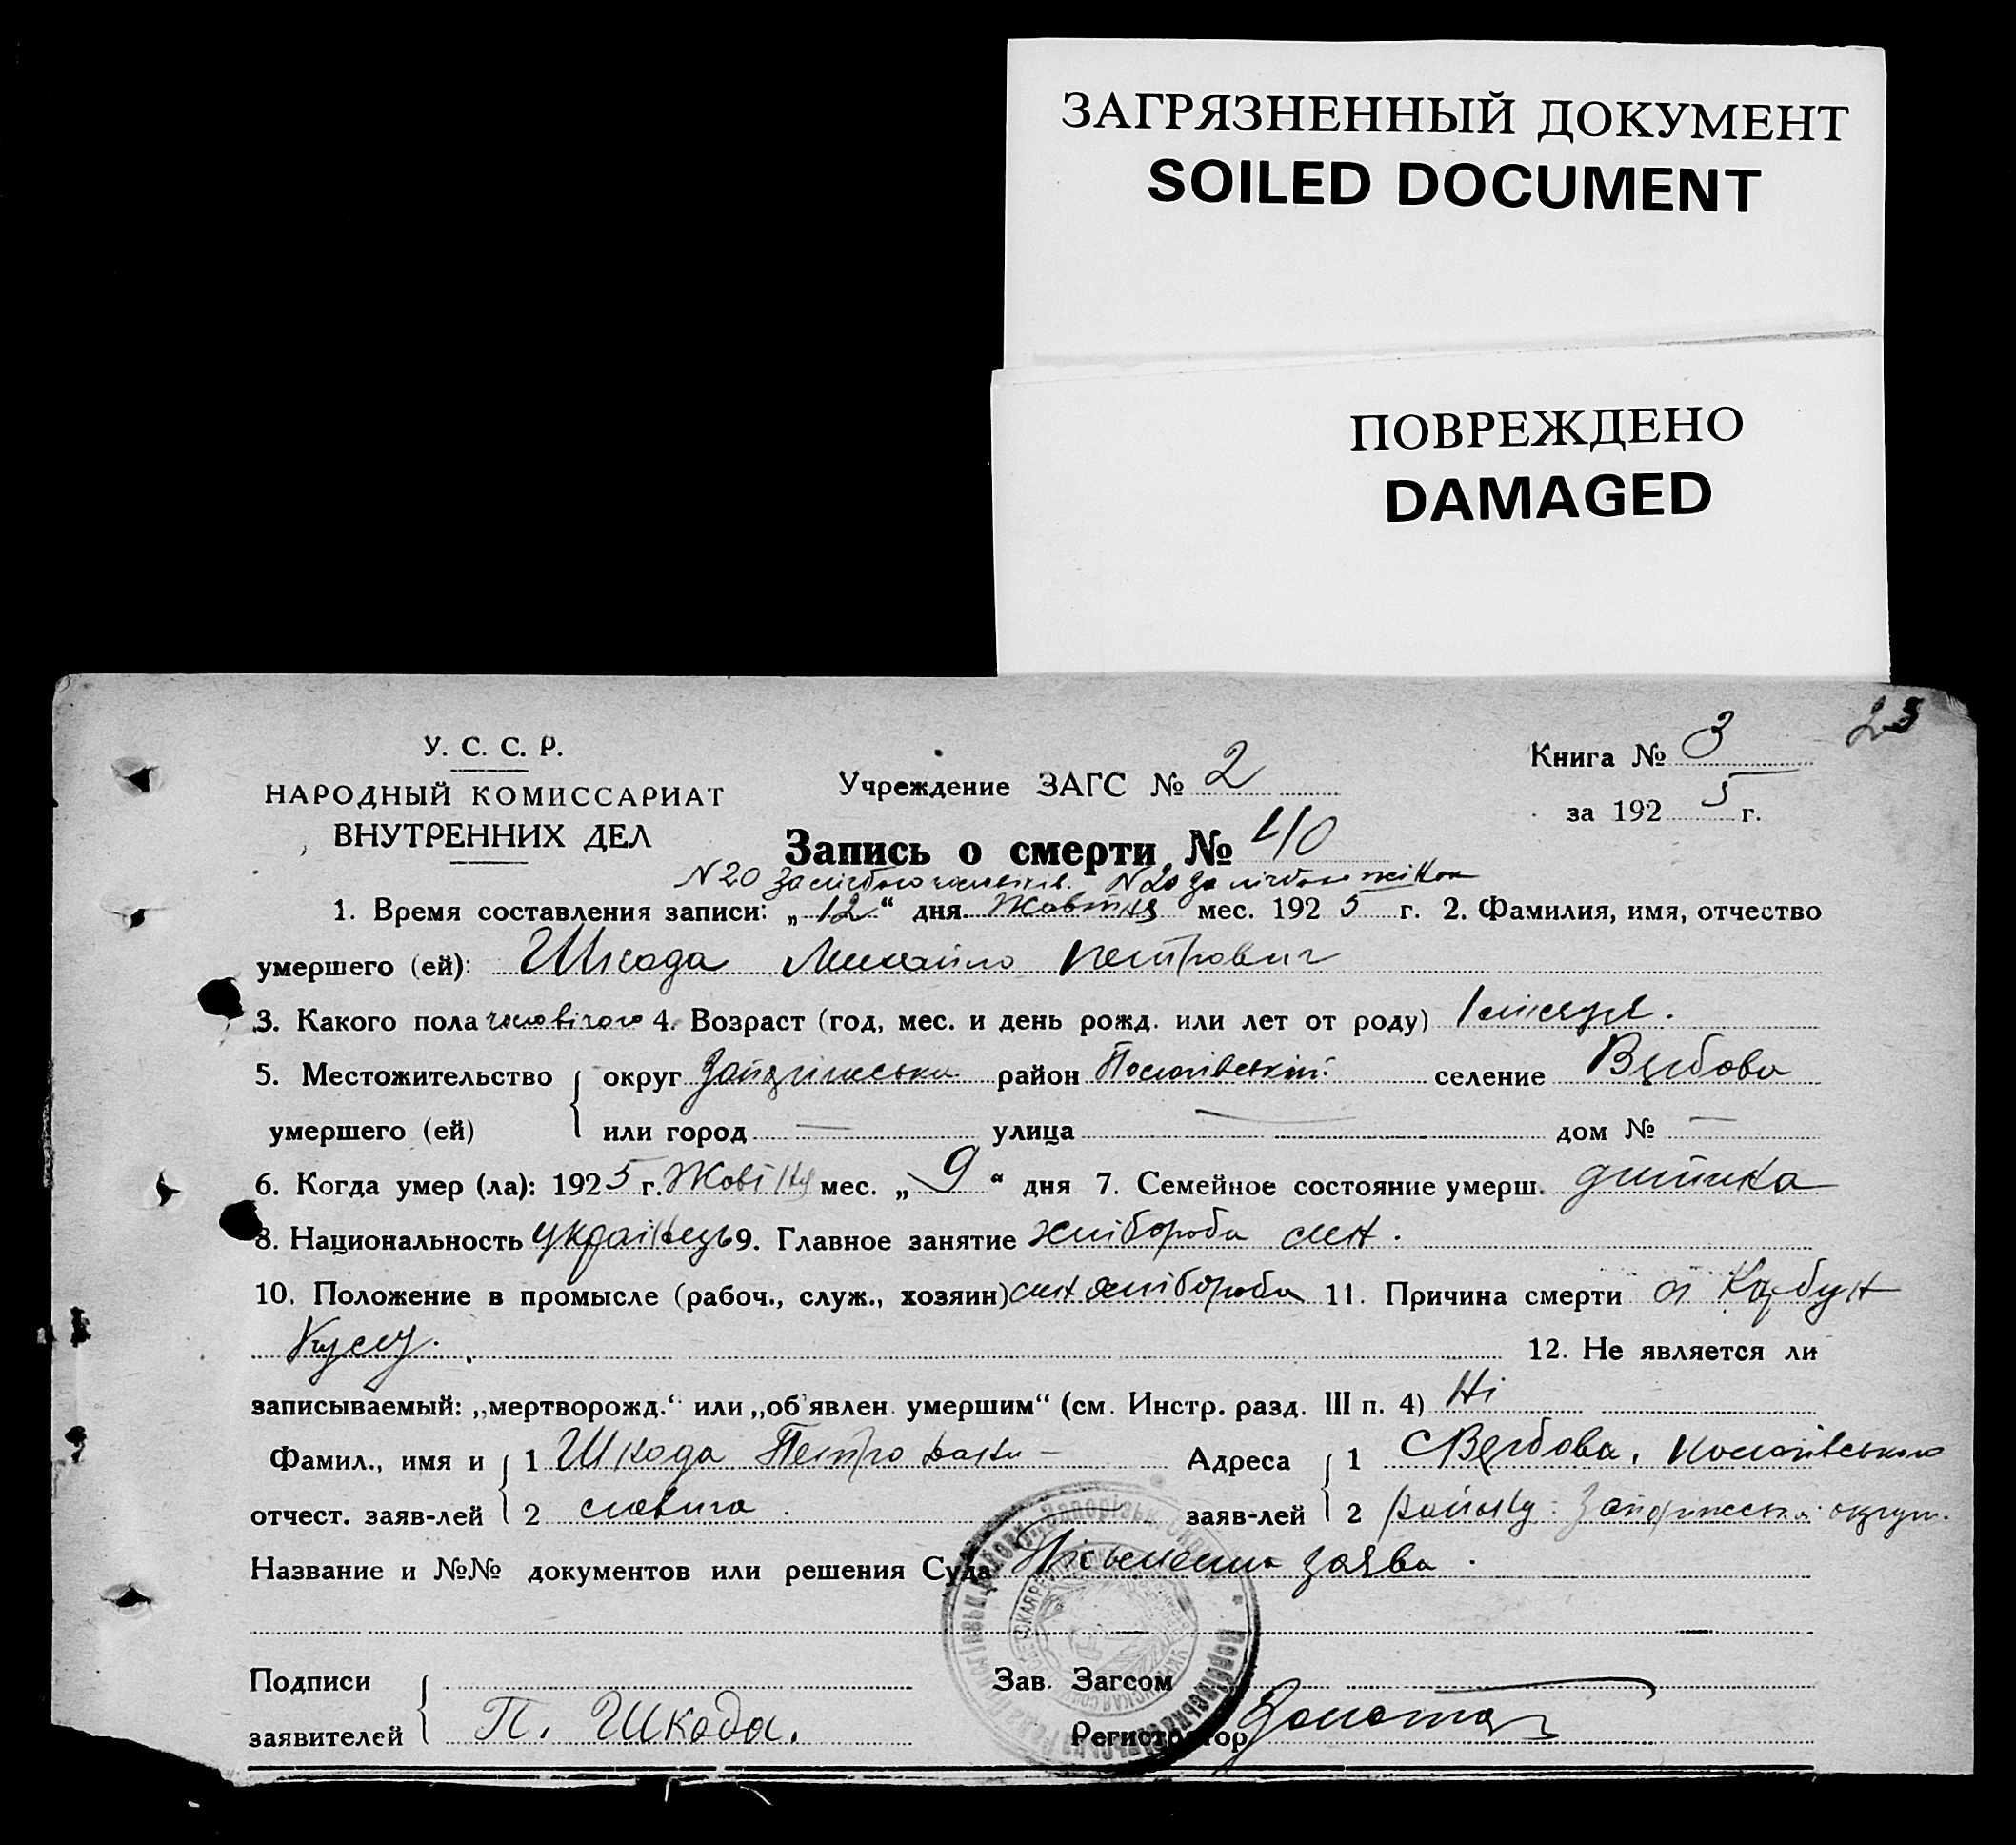 ЗАГРЯЗНЕННЫЙ ДОКУМЕНТ
SOILED DOCUMENT
ПОВРЕЖДЕНО
DAMAGED
23
У. С. С. Р.
НАРОДНЫЙ КОМИССАРИАТ
ВНУТРЕННИХ ДЕЛ
Учреждение ЗАГС № 2
Книга № 3
за 1925 г.
Запись о смерти № 40
N 20 N 20 жінок
1. Время составления записи: „12“ дня Жовтня мес. 1925 г. 2. Фамилия, имя, отчество
умершего (ей): Шкода Михайло Петрович
3. Какого пола чоловічого 4. Возраст (год, мес. и день рожд. или лет от роду)
5. Местожительство округ район Пологівський селение Вербова
умершего (ей) или город — улица — дом № —
6. Когда умер (ла): 1925 г. Жовтня мес. „9“ дня 7. Семейное состояние умерш. дитинка
8. Национальность українець 9. Главное занятие хлібороба син.
10. Положение в промысле (рабоч., служ., хозяин) син хлібороба 11. Причина смерти Карбун
кулу. 12. Не является ли
записываемый: „мертворожд.“ или „об'явлен умершим“ (см. Инстр. разд. III п. 4) Ні
Фамил., имя и 1 Шкода Петро Адреса 1 С Вербова, Пологівського
отчест. заяв-лей 2 заяв-лей 2 району округи.
Название и №№ документов или решения Суда Письменна заява.
Подписи Зав. Загсом
заявителей П. Шкода. Регистратор